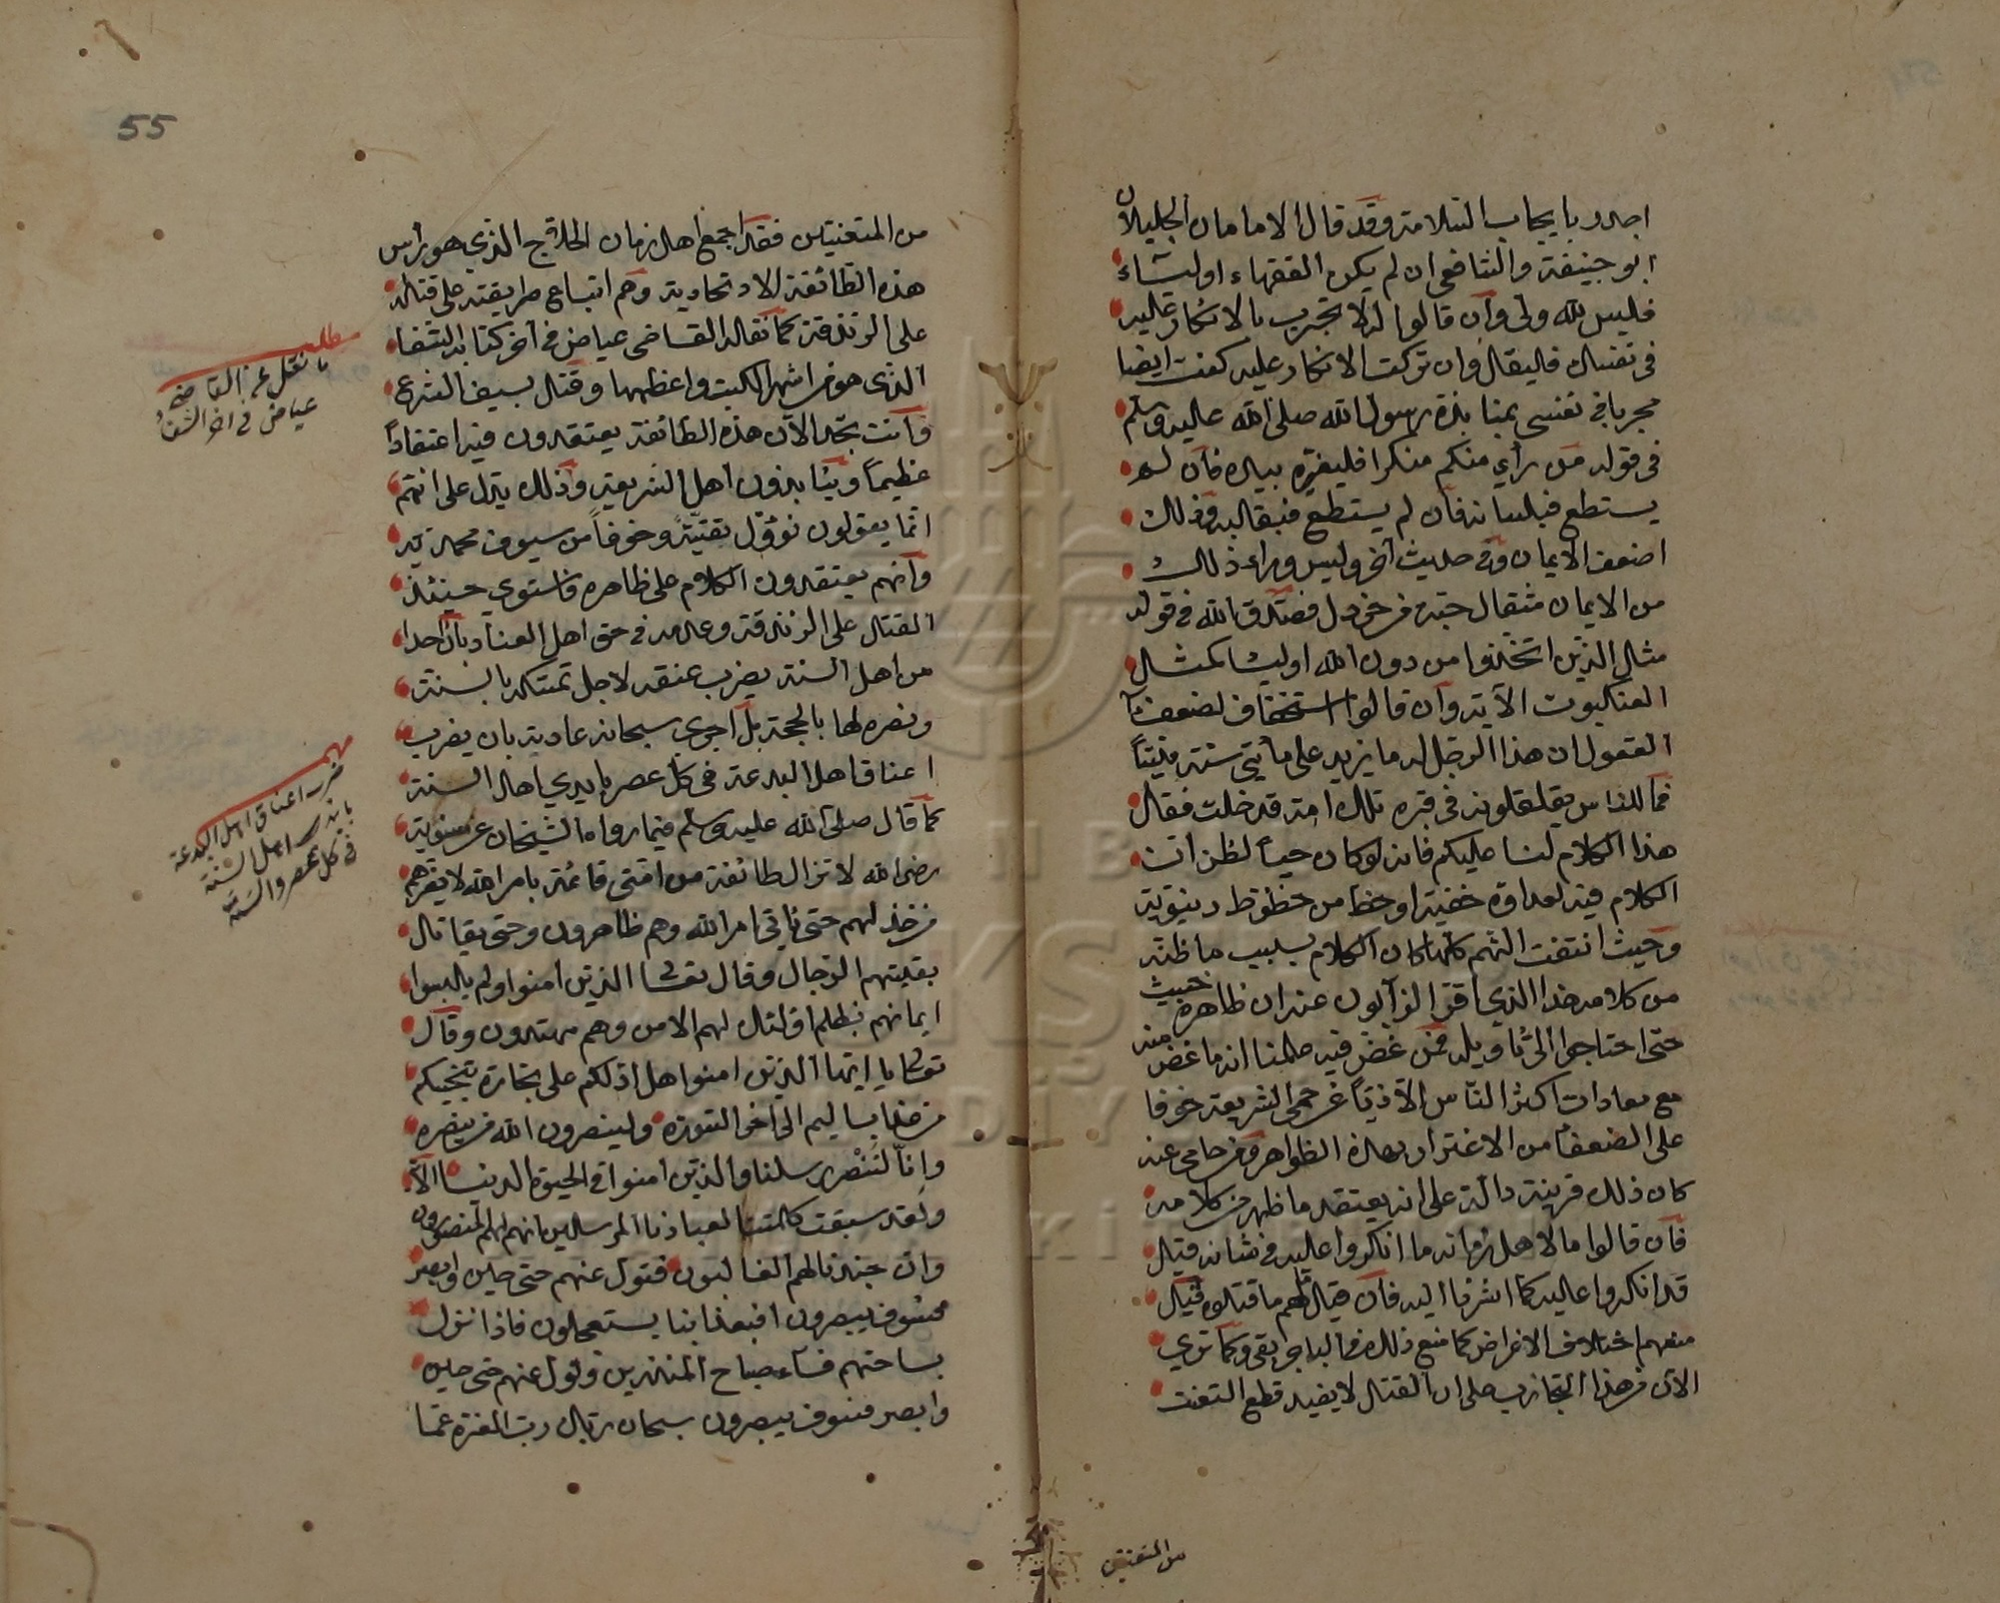 اجدر بايجاب السلامة وقد قال الامامان الجليلان
ابو حنيفة والشافعي ان لم يكن الفقهاء اولياء
فليس لله ولي وان قالوا له لا تجرب بالانكار عليه
في نفسك فليقل وان تركت الانكار عليه كنت ايضا
مجربا في نفسي بمنابذة رسول الله صلى الله عليه وسلم
في قوله من رأي منكم منكرا فليغيره بيده فان لم
يستطع فبلسانه فان لم يستطع فبقلبه وذلك
اضعف الايمان وفي حديث آخر وليس وراء ذلك
من الايمان مثقال حبة من خردل فصدق الله في قوله
مثل الذين اتخذوا من دون الله اولياء كمثل
العنكبوت الآية وان قالوا استخفافا لضعفاء
العقول ان هذا الرجل له ما يزيد على مأتي سنة ميتا
فما للناس يقلقلونه في قبره تلك امة قد خلت فقل
هذا الكلام لنا عليكم فانه لو كان حيا لظن ان
الكلام فيه لعداوة خفية او حظ من حظوظ دنيوية
وحيث انتفت التهم كلها كان الكلام بسبب ما ظنه
من كلامه هذا الذي اقر الذابون عنه ان ظاهره خبيث
حتى احتاجوا الى تأويله فمن غض فيه علمنا انه ما غض منه
مع معادات اكثر الناس الا ذبا عن حمى الشريعة خوفا
على الضعفاء من الاغترار بهذه الظواهر ومن حامى عنه
كان ذلك قرينة دالة على انه يعتقد ما ظهر من كلامه
فان قالوا ما لاهل زمانه ما انكروا عليه في شانه قيل
قد انكروا عليه كما اشرنا اليه فان قيل لهم ما قتلوه قيل
منعهم اختلاف الاغراض كما منع ذلك في الباجربقي وكما ترى
الآن من هذا التجاذب على ان القتل لا يفيد قطع التعنت
من المتعنتين
55
من المتعنتين فقد اجمع اهل زمان الحلاج الذي هو رأس
هذه الطائفة الاتحادية وهم اتباع طريقته على قتله
على الزندقة كما نقله القاضي عياض في آخر كتابه الشفا
الذي هو من اشهر الكتب واعظمها وقتل بسيف الشرع
وانت تجد الآن هذه الطائفة يعتقدون فيه اعتقادا
عظيما وينابذون اهل الشريعة وذلك يدل على انهم
انما يقولون نؤول تقية وخوفا من سيوف محمدية
وانهم يعتقدون الكلام على ظاهره فاستوى حينئذ
القتل على الزندقة وعدمه في حق اهل العناد بل احدا
من اهل السنة يضرب عنقه لاجل تمسكه بالسنة
ونصره لها بالحجة بل اجرى سبحانه عادية بان يضرب
اعناق اهل البدعة في كل عصر بايدي اهل السنة
كما قال صلى الله عليه وسلم فيما رواه الشيخان عن معوية
رضي الله لا تزال طائفة من امتي قائمة بامر الله لا يضرهم
من خذلهم حتى ياتي امر الله وهم ظاهرون وحتى يقاتل
بقيتهم الدجال وقال تعالى الذين امنوا ولم يلبسوا
ايمانهم بظلم اولئك لهم الامن وهم مهتدون وقال
تعالى يا ايها الذين امنوا هل ادلكم على تجارة تنجيكم
من عذاب اليم الى آخر السورة ولينصرن الله من ينصره
وانا لننصر رسلنا والذين امنوا في الحيوة الدنيا الآية
ولقد سبقت كلمتنا لعبادنا المرسلين انهم لهم المنصورون
وان جندنا لهم الغالبون فتول عنهم حتى حين وابصر
فسوف يبصرون افبعذابنا يستعجلون فاذا نزل
بساحتهم فساء صباح المنذرين وتول عنهم حتى حين
وابصر فسوف يبصرون سبحان ربك رب العزة عما
مطلب
ما نقل عن القاضي
عياض في اخر الشفاء
مهم
ضرب اعناق اهل البدعة
بايدي اهل السنة
في كل عصر والسنة